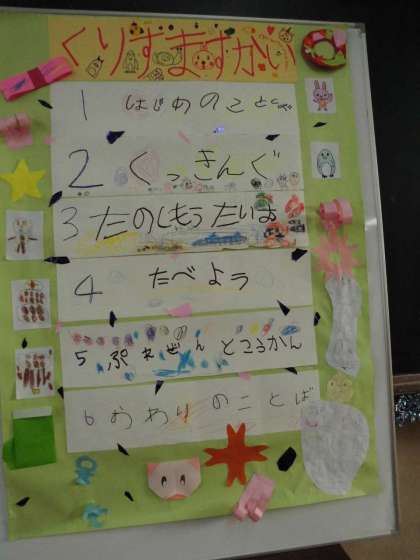 くりすますかい
1 はじめのことば
2 くっきんぐ
3 たのしもうたいむ
4 たべよう
5 ぷれぜんとこうかん
6 おわりのことば